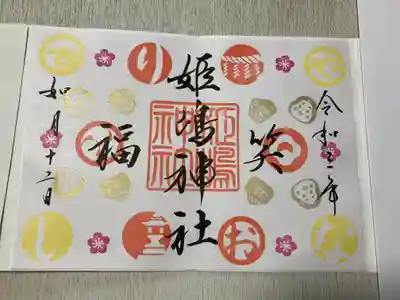 令和三年
笑
姫嶋神社
福
如月十二日
姫嶋神社